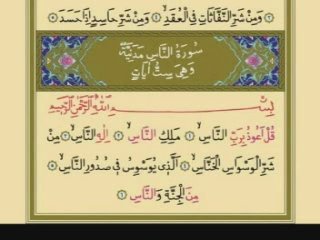 وَمِنْ شَرِّ النَّفَّاثَاتِ فِي الْعُقَدِ ۙ ﴿٤﴾ وَمِنْ شَرِّ حَاسِدٍ اِذَا حَسَدَ ﴿٥﴾
سُورَةُ النَّاسِ مَدَنِيَّةٌ
وَهِيَ سِتُّ اٰيَاتٍ
بِسْمِ اللهِ الرَّحْمٰنِ الرَّحِيمِ
قُلْ اَعُوذُ بِرَبِّ النَّاسِ ۙ ﴿١﴾ مَلِكِ النَّاسِ ۙ ﴿٢﴾ اِلٰهِ النَّاسِ ۙ ﴿٣﴾ مِنْ
شَرِّ الْوَسْوَاسِ الْخَنَّاسِ ۙ ﴿٤﴾ اَلَّذِي يُوَسْوِسُ فِي صُدُورِ النَّاسِ ۙ ﴿٥﴾
مِنَ الْجِنَّةِ وَالنَّاسِ ﴿٦﴾